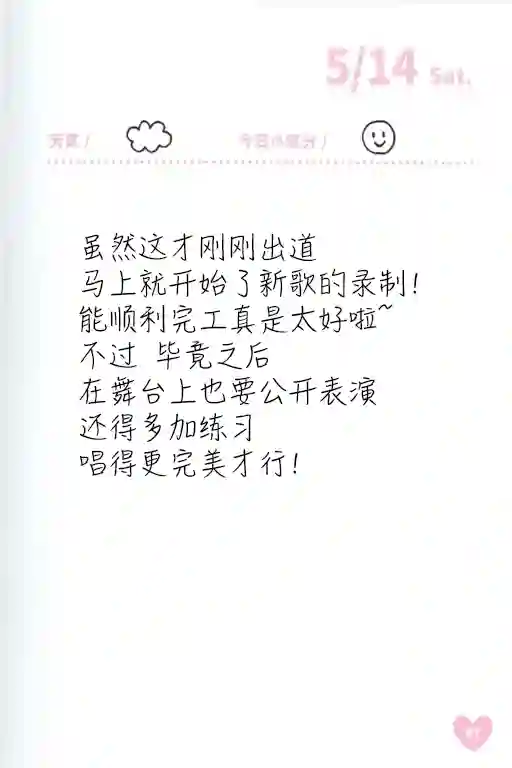 5/14 Sat.
天气 /
今日小成分 /
虽然这才刚刚出道
马上就开始了新歌的录制!
能顺利完工真是太好啦~
不过 毕竟之后
在舞台上也要公开表演
还得多加练习
唱得更完美才行!